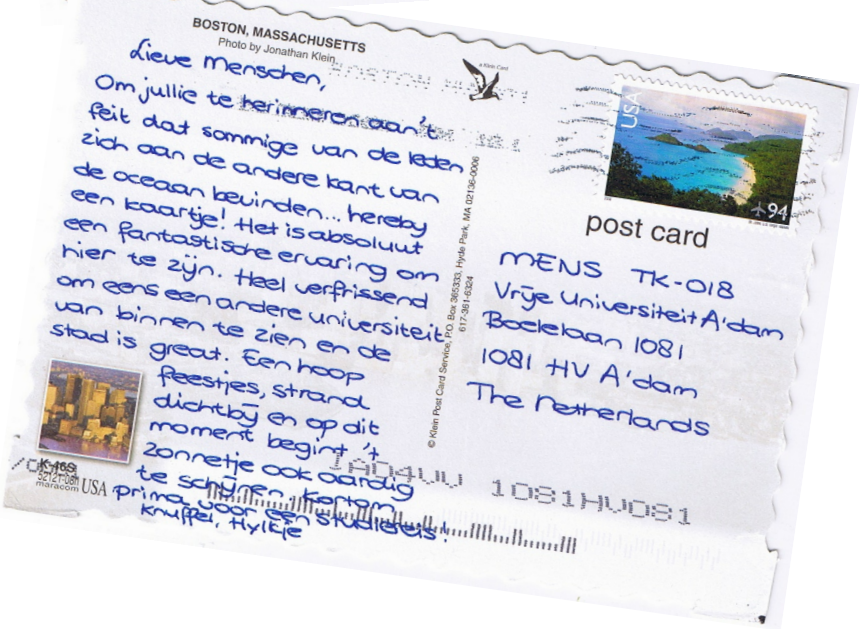 BOSTON, MASSACHUSETTS
Photo by Jonathan Klein
Lieve Menschen,
Om jullie te herinneren aan't
feit dat sommige van de leden
zich aan de andere kant van
de oceaan bevinden... hereby
een kaartje! Het is absoluut
een fantastische ervaring om
hier te zijn. Heel verfrissend
om eens een andere universiteit
van binnen te zien en de
stad is great. Een hoop
feestjes, strand
dichtbij en op dit
moment begint 't
zonnetje ook aardig
te schijnen. Kortom,
prima voor een studiereis!
Knuffel, Hylkje
K-469
52121-08H
maracom USA
a Klein Card
© Klein Post Card Service, P.O. Box 365333, Hyde Park, MA 02136-0006
617-361-6324
USA
94
post card
MENS TK-018
Vrije Universiteit A'dam
Boelelaan 1081
1081 HV A'dam
The Netherlands
1A04VV 1081HV081